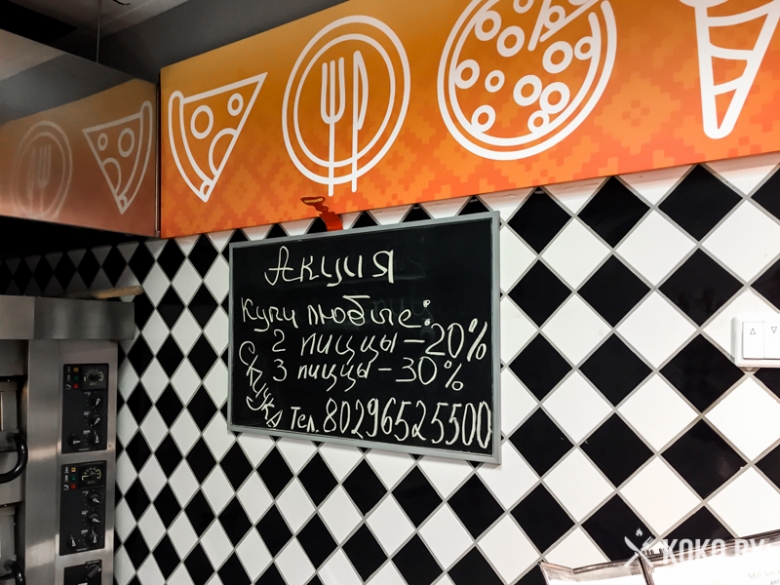 Акция
Купи любые:
2 пиццы - 20%
3 пиццы - 30%
Скидка
Тел. 80296525500
KOKO.BY